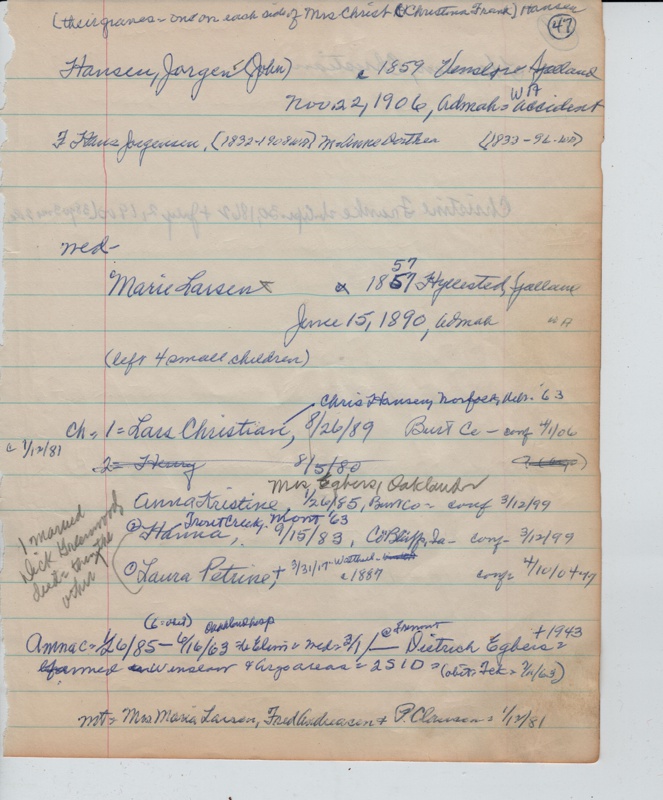 (their graves - one on each side of Mrs Christ (Christina Frank) Hansen
47
Hansen, Jorgen (John) c 1859 Jylland
Nov. 22, 1906, Admah = accident WA
F Hans Jorgensen, (1832-1908 WA) M = Anne Dorthea (1832-96-WA)
wed -
Marie Larsen x 1857 57 Hyllested, Jylland
June 15, 1890, Admah WA
(left 4 small children)
Chris Hansen, Norfolk, Nebr. '63
Ch, 1 = Lars Christian, 8/26/89 Burt Co - conf 4/1/06
c 1/12/81
2 = Henry 8/5/80
Mrs. Egbers, Oakland
Anna Kristine, 1/26/85, Burt Co - conf 3/12/99
Trout Creek, Mont '63
@ Hanna, 9/15/83, Co Bluffs, Ia - conf - 3/12/99
@ Laura Petrine, + 3/31/17 - c 1887 conf = 4/10/04
1 married
Dick
other
Anna C = 1/26/85 - 6/16/63 wed = 3/1/ — Dietrich Egbers = + 1943
farmed Winslow & Argo areas = 2S 1D = (obit: Tek = 7/11/63)
nt = Mrs Maria Larsen, Fred Andreasen & P. Clausen = 1/12/81